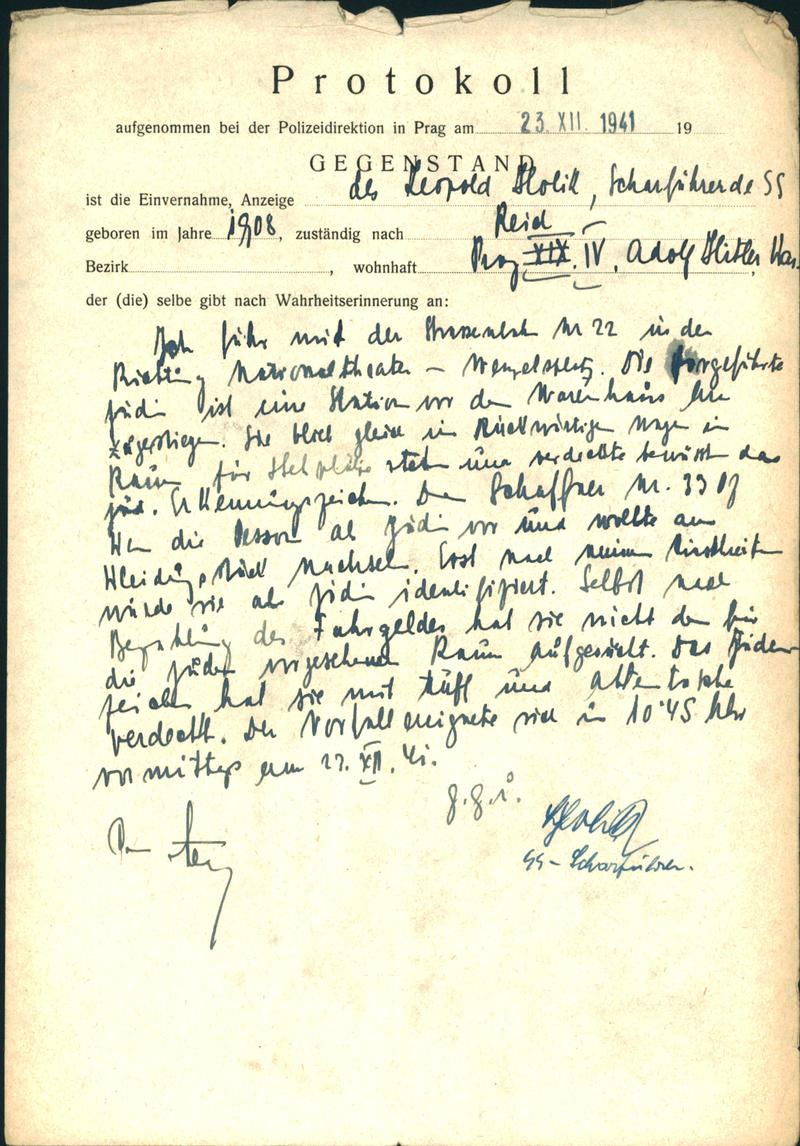 Protokoll
aufgenommen bei der Polizeidirektion in Prag am 23. XII. 1941 19
GEGENSTAND
ist die Einvernahme, Anzeige des Leopold Holik, Scharführer de SS
geboren im Jahre 1908, zuständig nach Reid
Bezirk , wohnhaft Prag XIX. IV, Adolf Hitler
der (die) selbe gibt nach Wahrheitserinnerung an:
Ich fuhr mit der Strassenbahn Nr 22 in der
Richtung Nationaltheater – Wenzelsplatz. Die vorgeführte
Jüdin ist eine Station vor dem Warenhaus
zugestiegen. Sie blieb gleich im Rückwärtigen Wagen im
Raum für Stehplätze stehn und verdeckte bewusst das
jüd. Erkennungszeichen. Dem Schaffner Nr. 3307
kam die Person als Jüdin vor und wollte am
Kleidungsstück nachsehen. Erst nach meinem Einschreiten
wurde sie als Jüdin identifiziert. Selbst nach
Bezahlung des Fahrgeldes hat sie nicht den für
die Juden vorgesehenen Raum aufgesucht. Das Juden-
zeichen hat sie mit Muff und Aktentasche
verdeckt. Der Vorfall ereignete sich um 10·45 Uhr
vormittags am 23. XII. 41.
g.g.u.
Holik
SS-Scharführer.